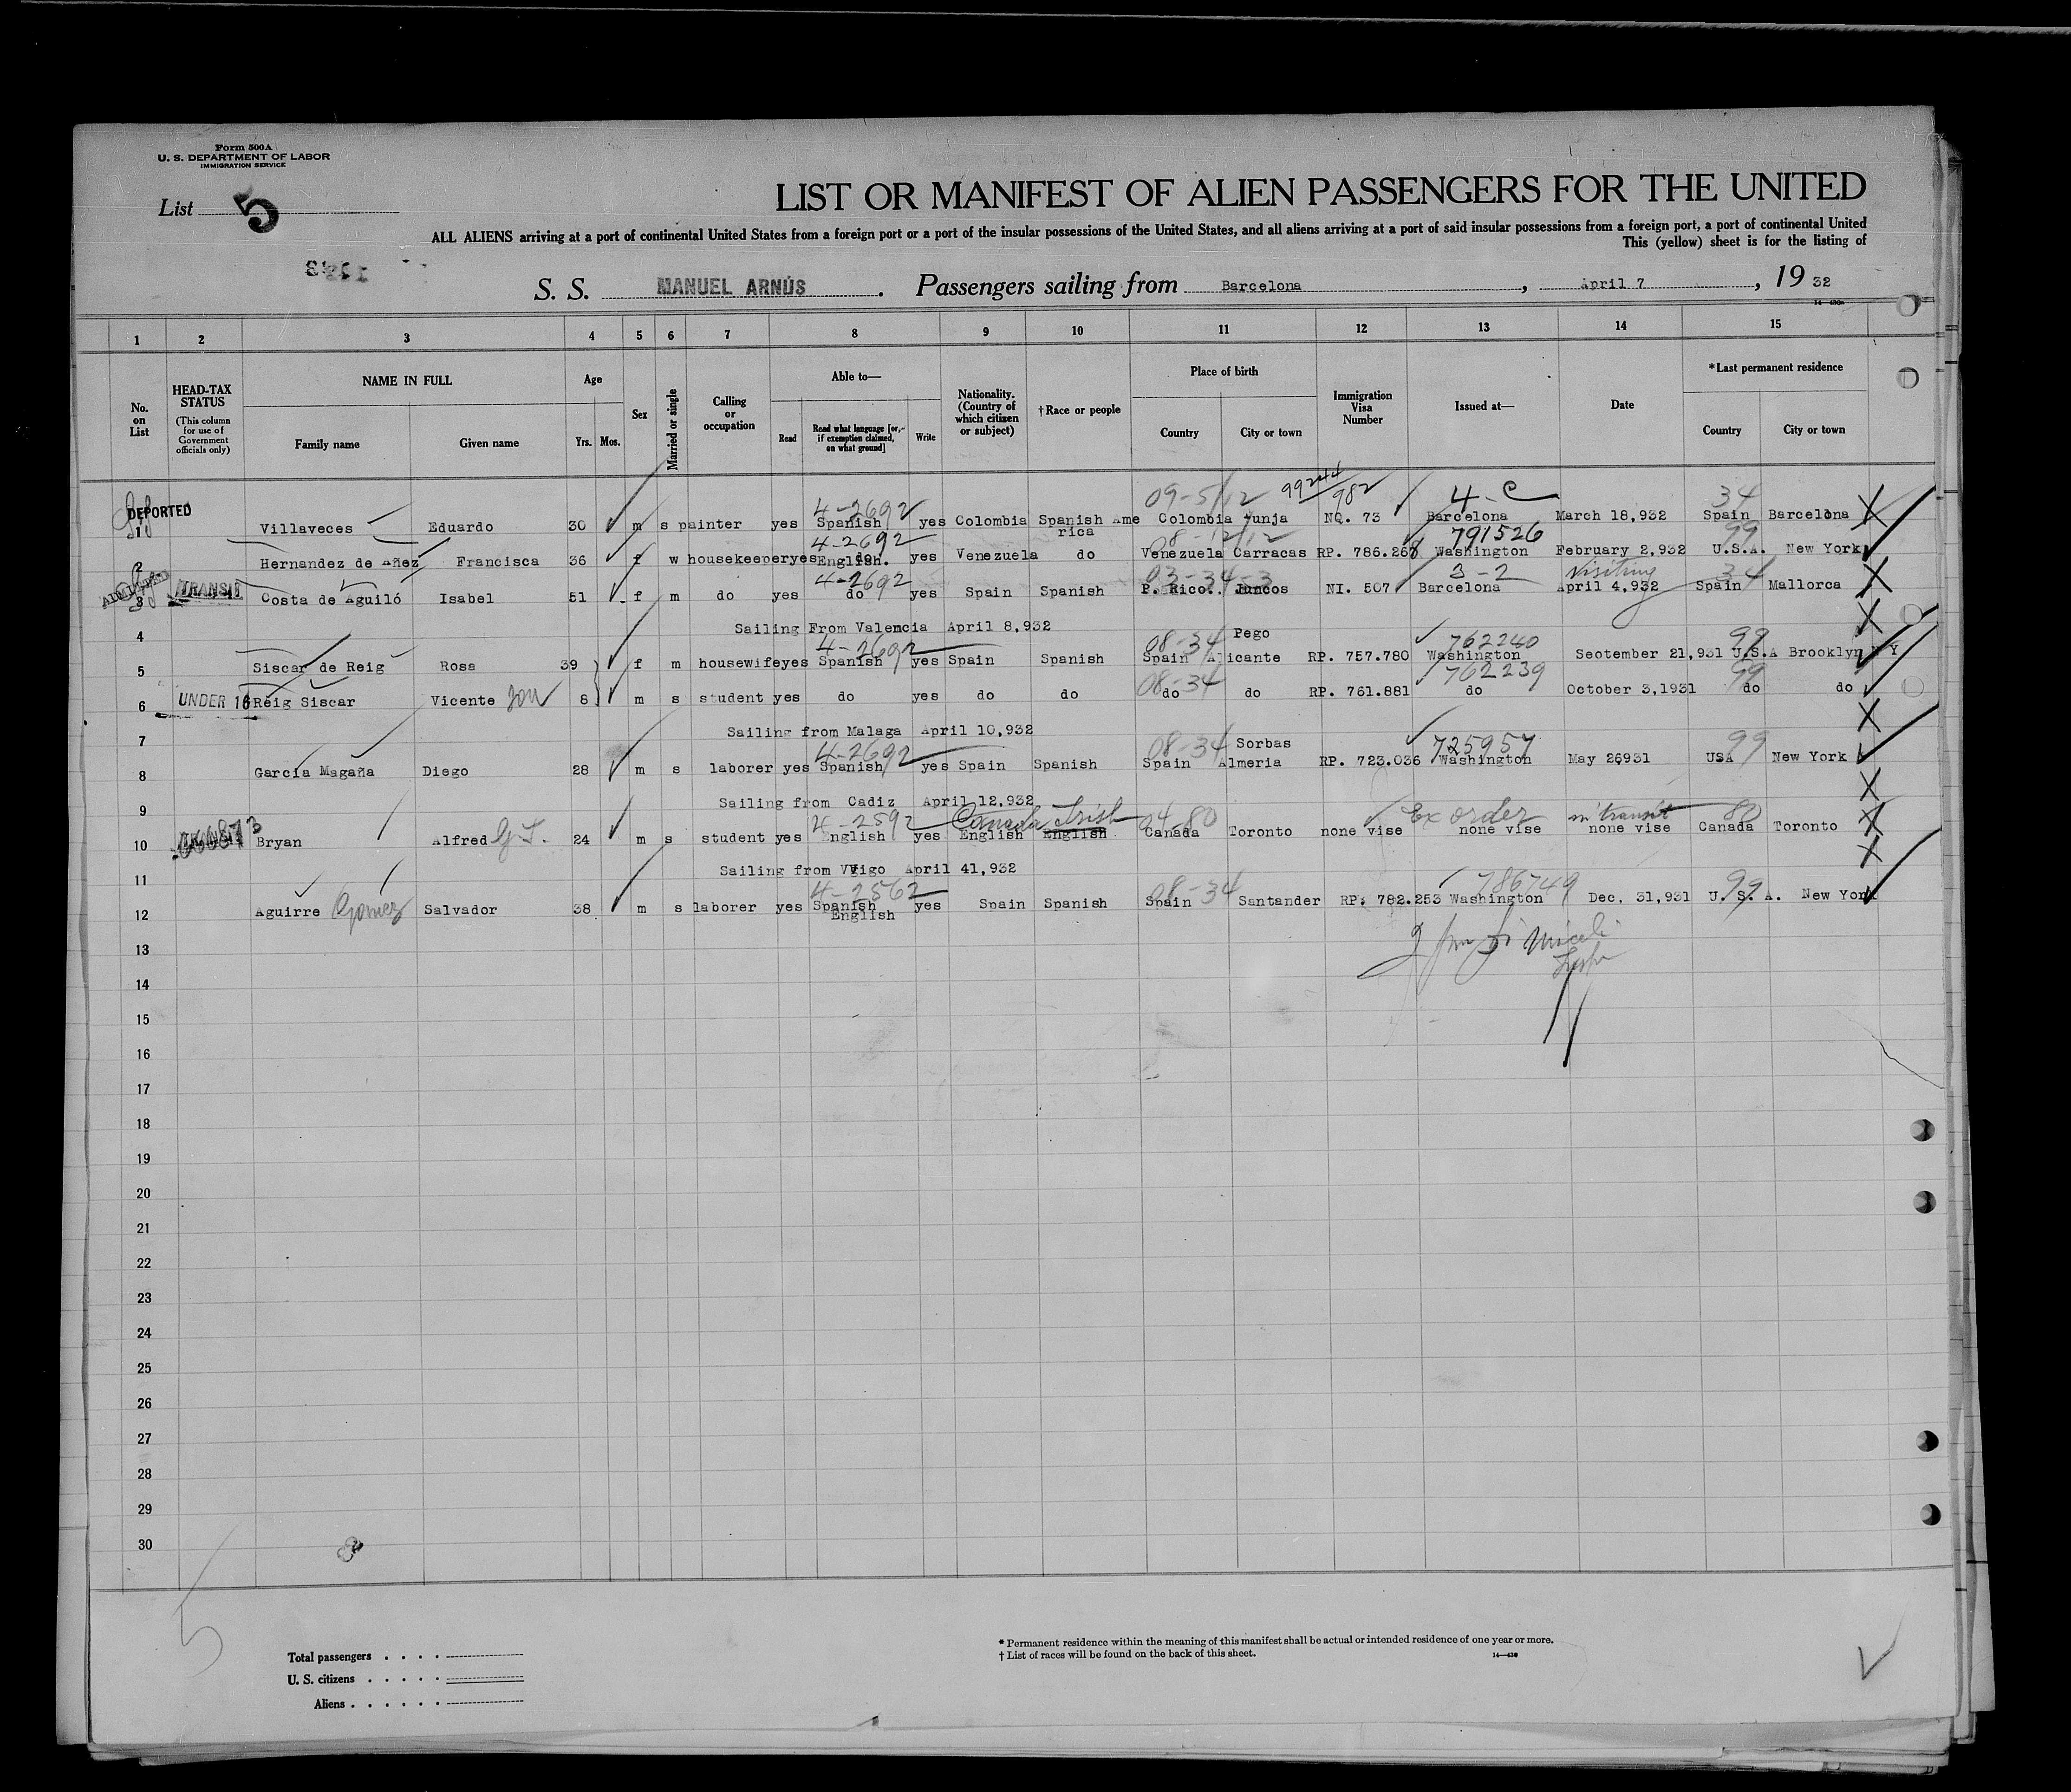 Form 500A
U. S. DEPARTMENT OF LABOR
IMMIGRATION SERVICE
List 5
LIST OR MANIFEST OF ALIEN PASSENGERS FOR THE UNITED
ALL ALIENS arriving at a port of continental United States from a foreign port or a port of the insular possessions of the United States, and all aliens arriving at a port of said insular possessions from a foreign port, a port of continental United
This (yellow) sheet is for the listing of
S. S. MANUEL ARNÚS. Passengers sailing from Barcelona, April 7, 19 32
1 2 3 4 5 6 7 8 9 10 11 12 13 14 15
No. on List
HEAD-TAX STATUS (This column for use of Government officials only)
NAME IN FULL
Family name Given name
Age
Yrs. Mos.
Sex
Married or single
Calling or occupation
Able to—
Read Read what language [or, if exemption claimed, on what ground] Write
Nationality. (Country of which citizen or subject)
†Race or people
Place of birth
Country City or town
Immigration Visa Number
Issued at—
Date
*Last permanent residence
Country City or town
4-2692 09-5/12 982 4-C 34
DEPORTED
1 Villaveces Eduardo 30 m s painter yes Spanish yes Colombia Spanish Ame rica Colombia Tunja NQ. 73 Barcelona March 18,932 Spain Barcelona
4-2692 08-12/12 791526 99
2 Hernandez de Añez Francisca 36 f w housekeeper yes do English. yes Venezuela do Venezuela Carracas RP. 786.268 Washington February 2,932 U.S.A. New York
4-2692 03-34-3 3-2 Visiting 34
3 TRANSIT Costa de Aguiló Isabel 51 f m do yes do yes Spain Spanish P. Rico. Juncos NI. 507 Barcelona April 4,932 Spain Mallorca
4 Sailing From Valencia April 8,932
4-2692 08-34 Pego 762240 99
5 Siscar de Reig Rosa 39 f m housewife yes Spanish yes Spain Spanish Spain Alicante RP. 757.780 Washington September 21,931 U.S.A Brooklyn N Y
08-34 762239 99
6 UNDER 16 Reig Siscar Vicente son 8 m s student yes do yes do do do do RP. 761.881 do October 3,1931 do do
7 Sailing from Malaga April 10,932
4-2692 08-34 Sorbas 725957 99
8 García Magaña Diego 28 m s laborer yes Spanish yes Spain Spanish Spain Almeria RP. 723.036 Washington May 26931 USA New York
9 Sailing from Cadiz April 12,932
4-2592 Canada Irish 04-80 Ex order in transit 80
10 Bryan Alfred G.T. 24 m s student yes English yes English English Canada Toronto none vise none vise none vise Canada Toronto
11 Sailing from Vigo April 41,932
4-2562 08-34 786749 99
12 Aguirre Gomez Salvador 38 m s laborer yes Spanish English yes Spain Spanish Spain Santander RP. 782.253 Washington Dec. 31,931 U.S.A. New York
13
14
15
16
17
18
19
20
21
22
23
24
25
26
27
28
29
30
5
Total passengers
U. S. citizens
Aliens
* Permanent residence within the meaning of this manifest shall be actual or intended residence of one year or more.
† List of races will be found on the back of this sheet.